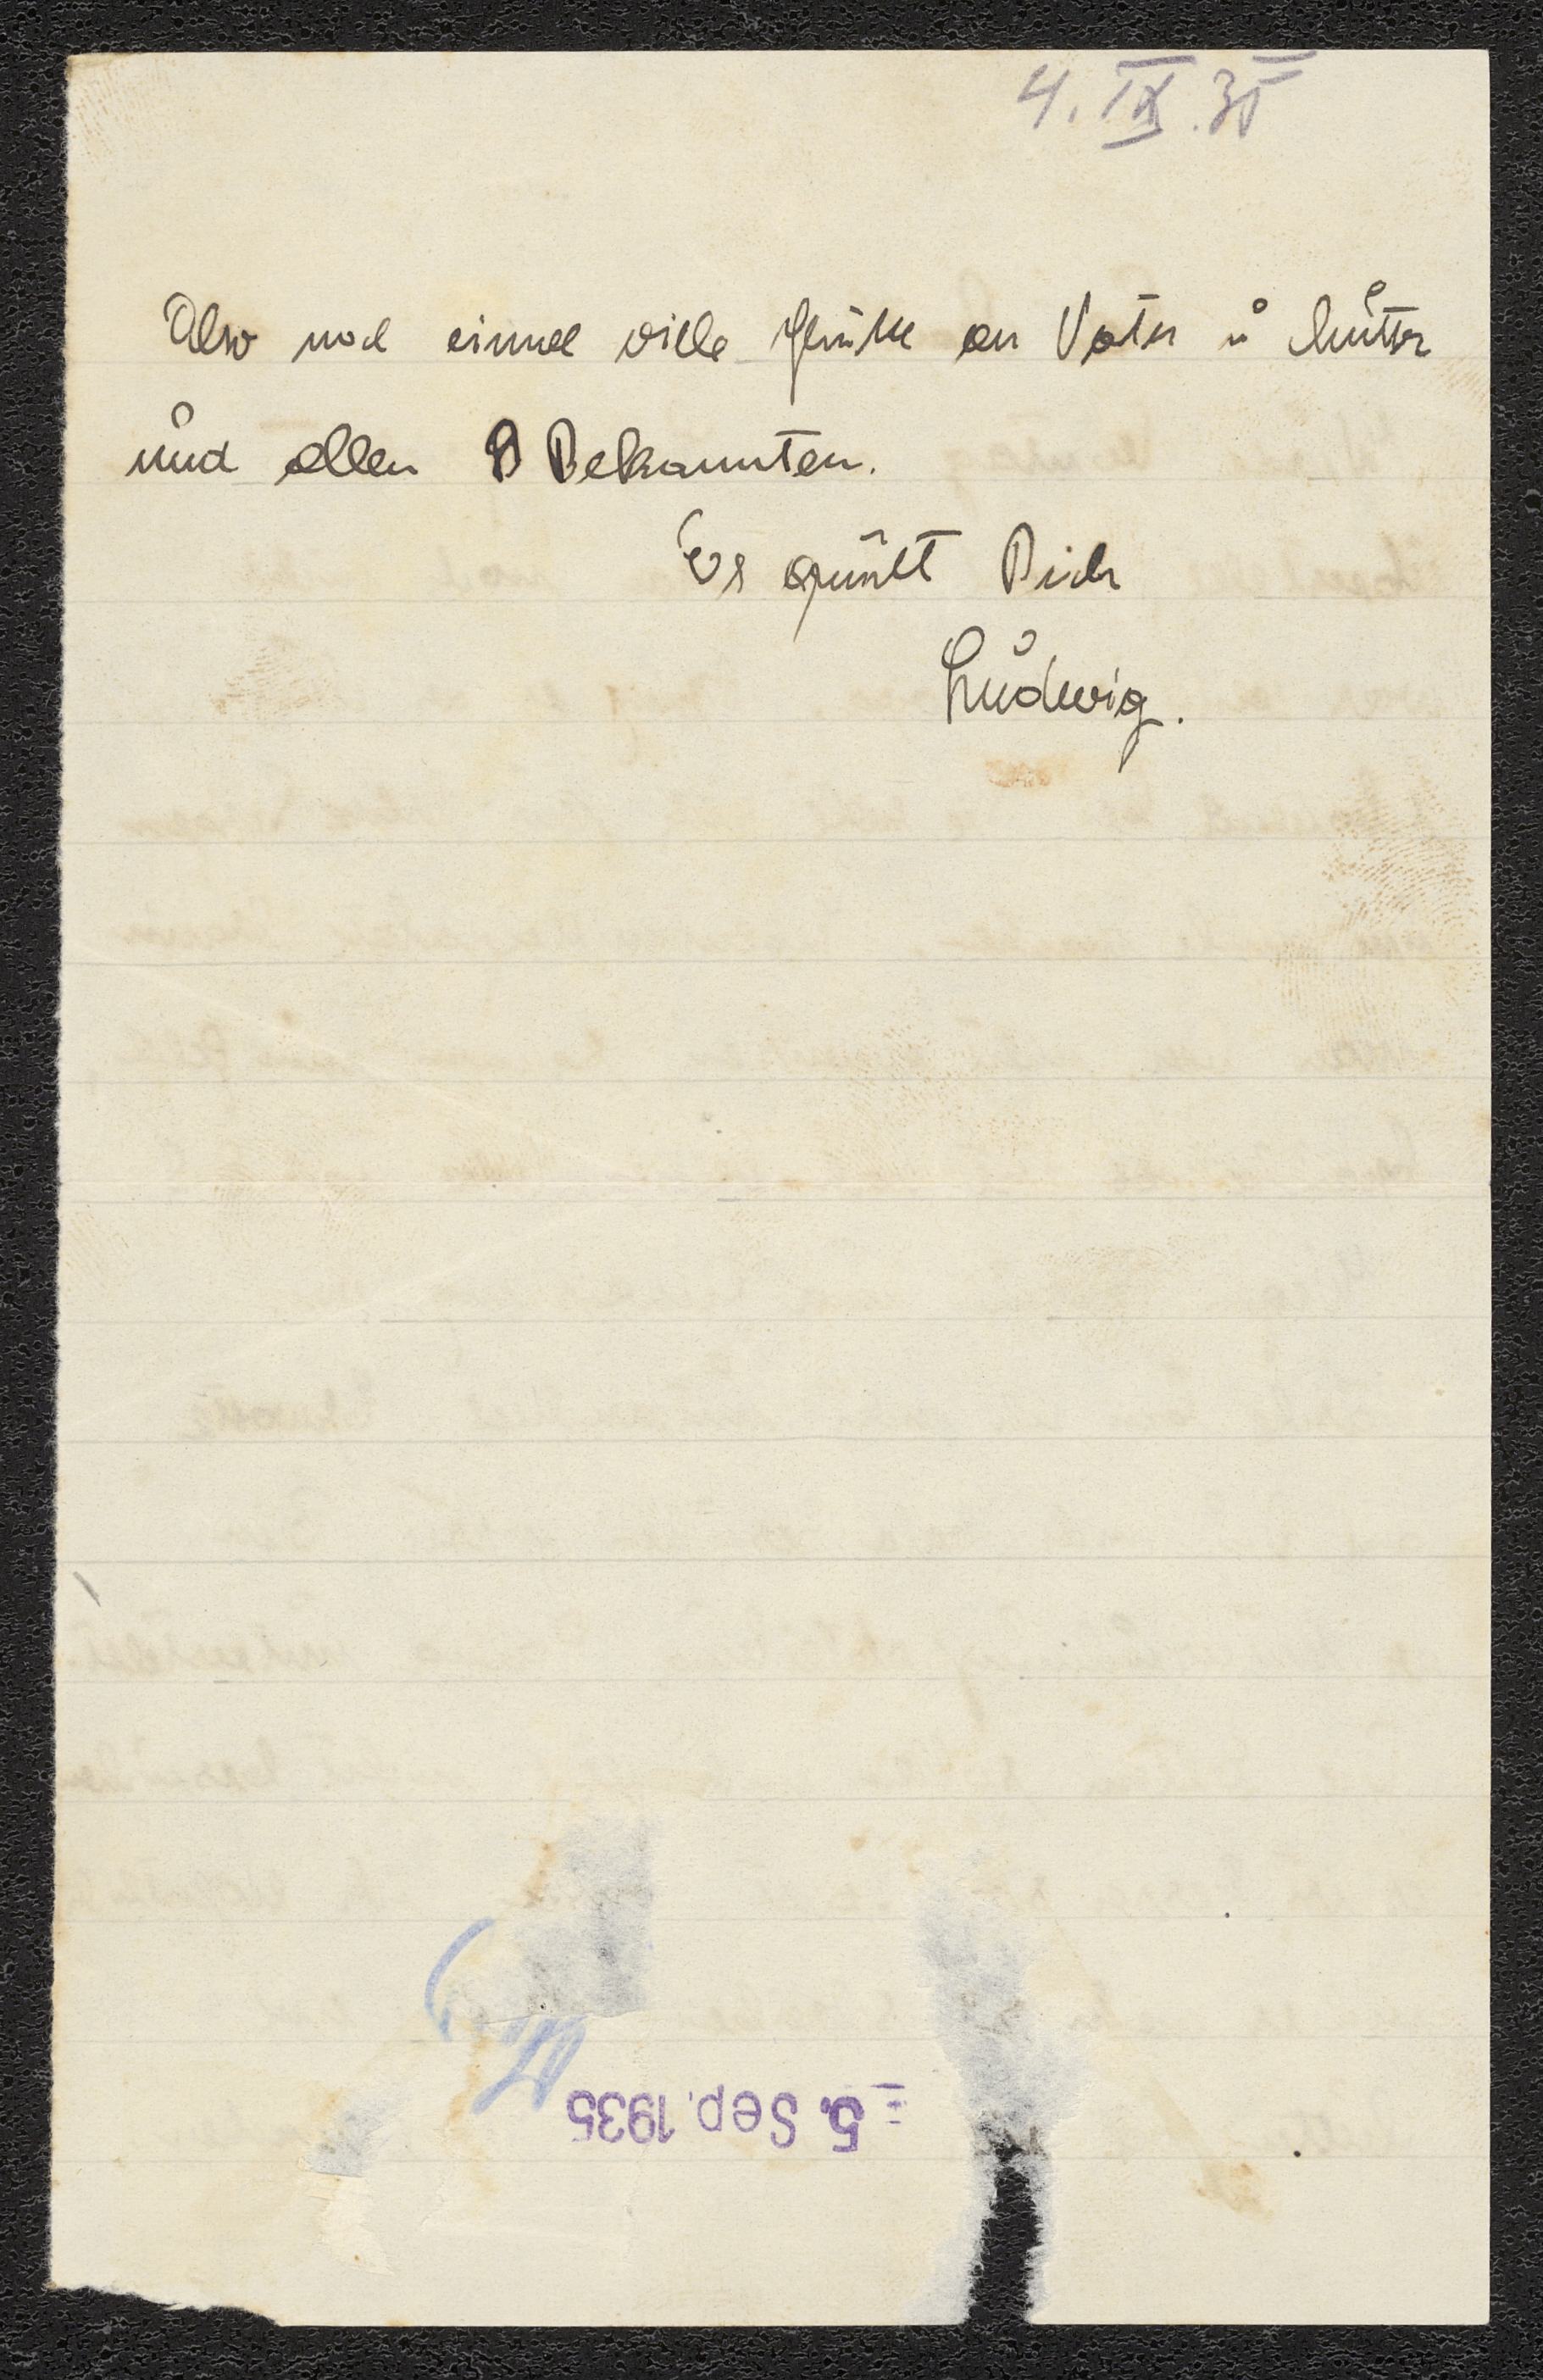 4. IX. 35
Also noch einmal viele Grüße an Vater u Mutter
und allen B Bekannten.
Es grüßt Dich
Ludwig.
- 5. Sep. 1935